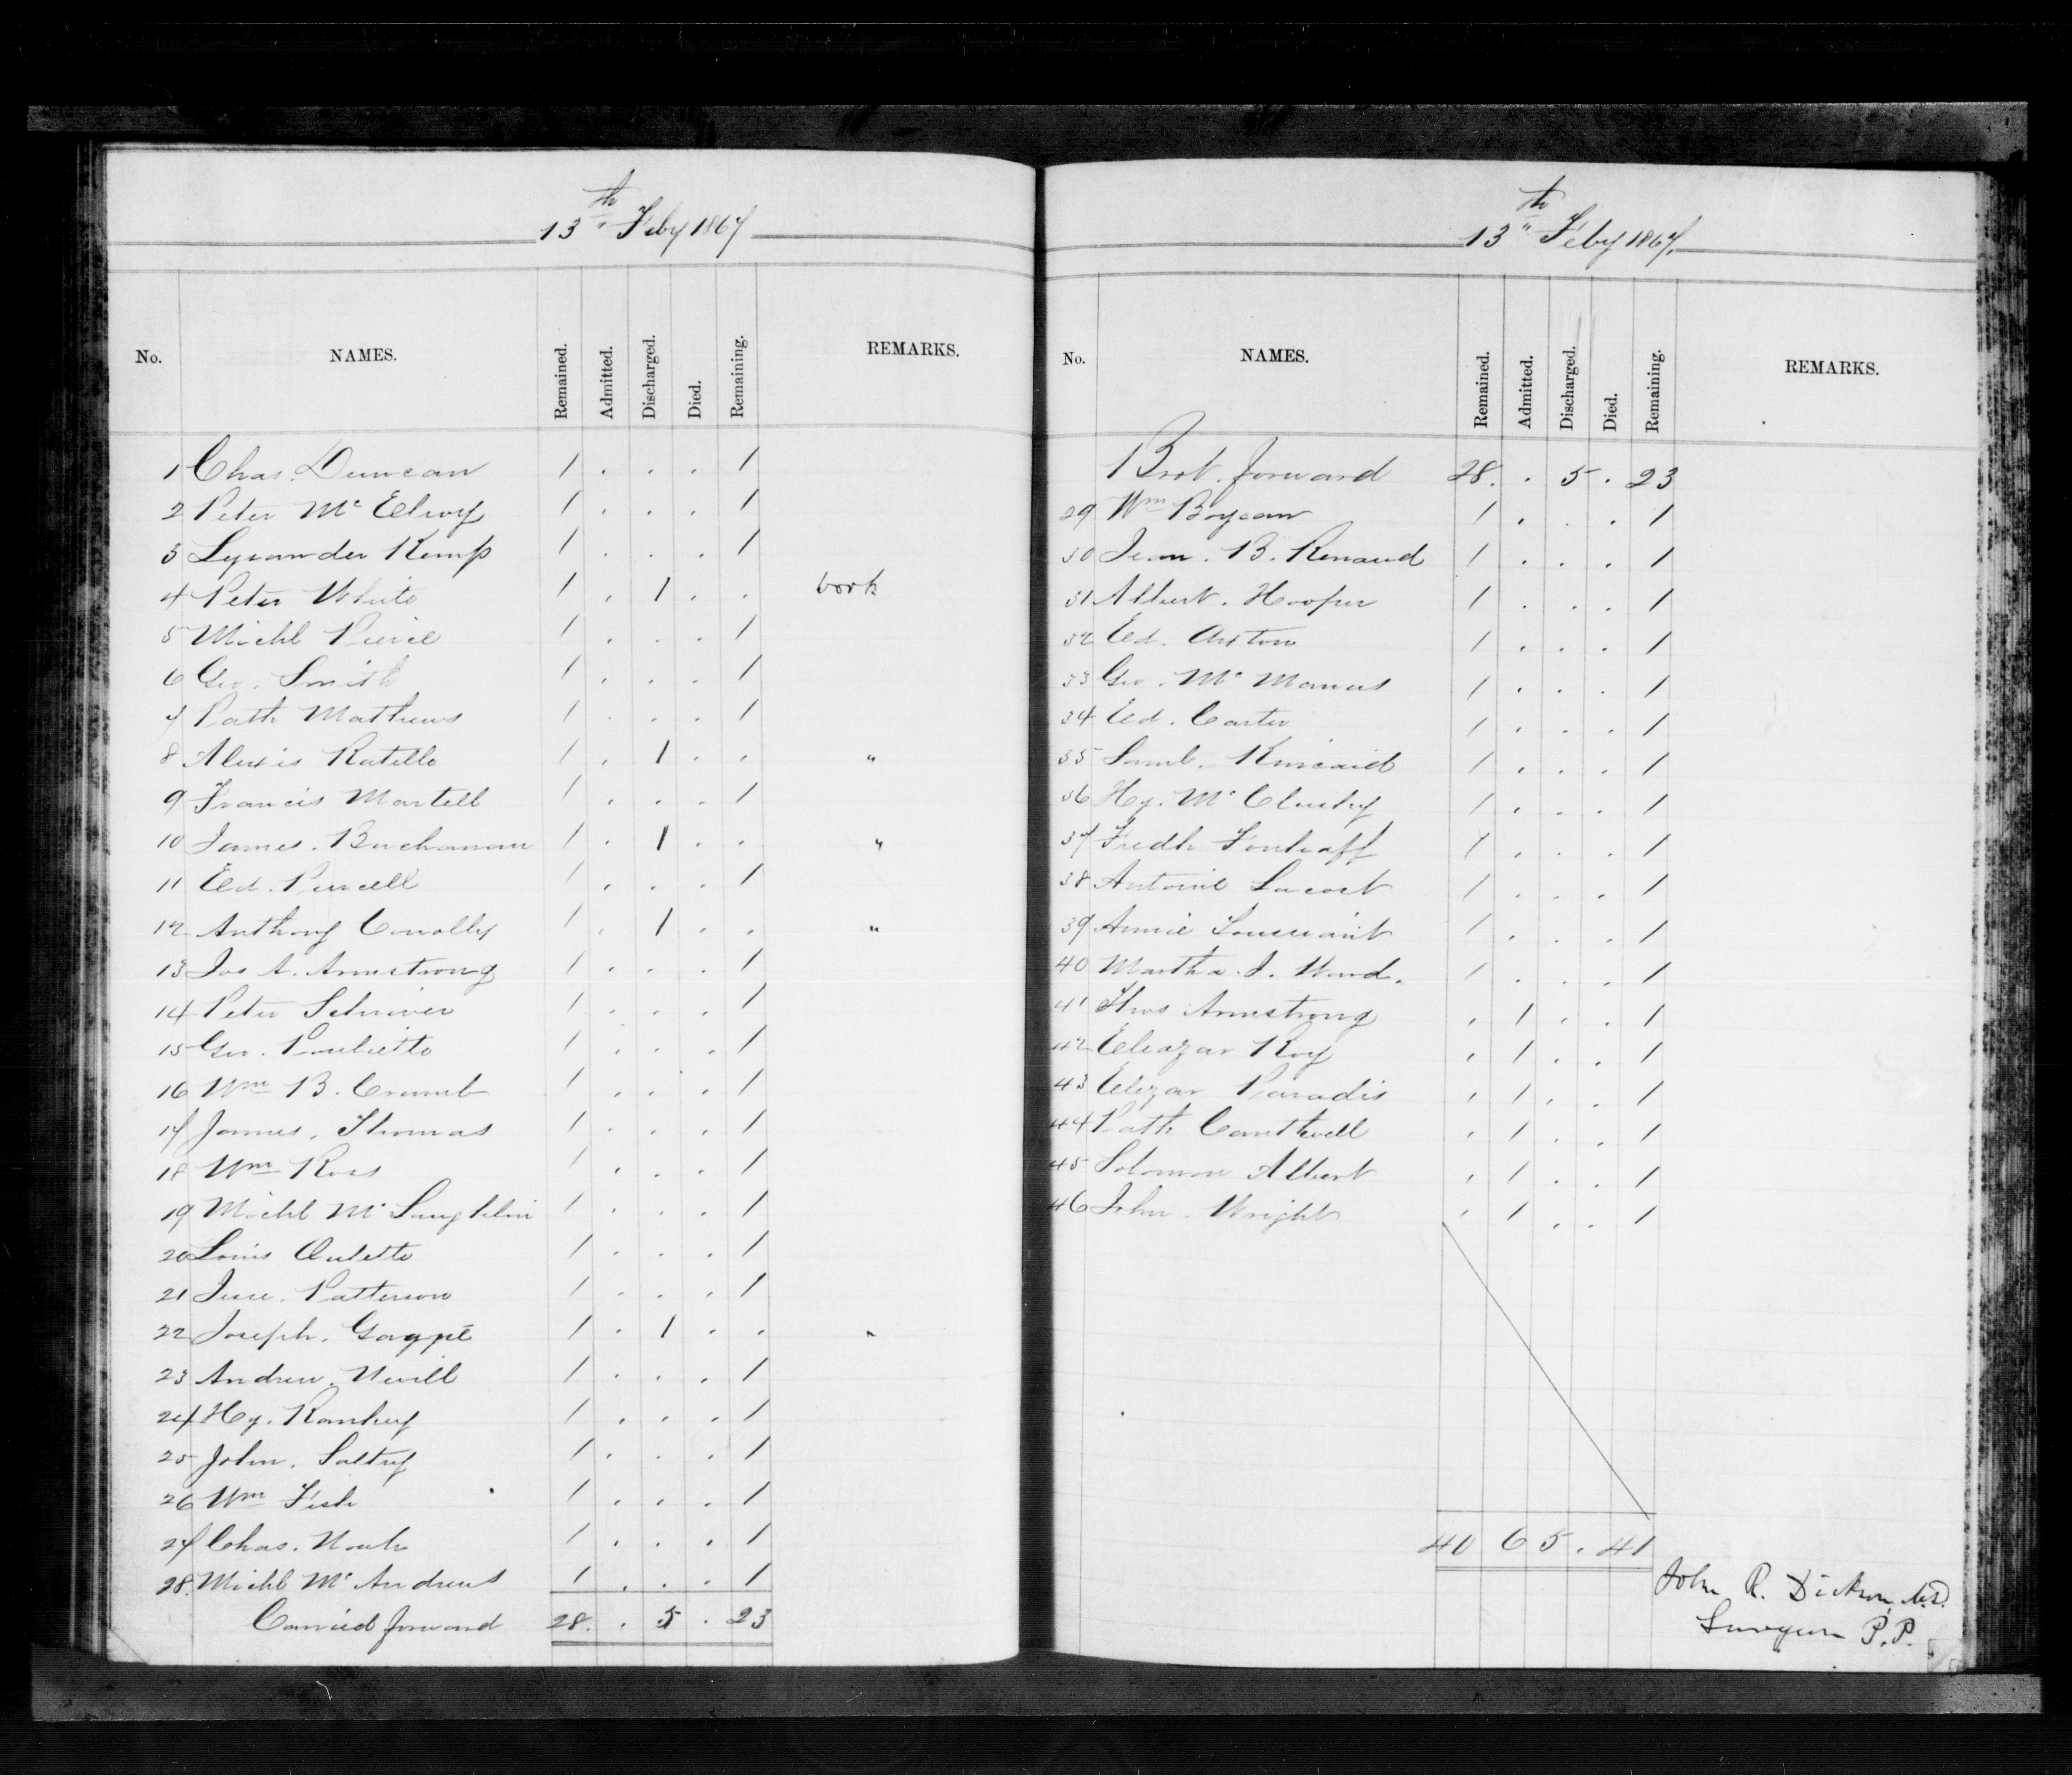 13th Feby 1867
No. NAMES. Remained. Admitted. Discharged. Died. Remaining. REMARKS.
1 Chas. Duncan 1 . . . 1
2 Peter Mc Elroy 1 . . . 1
3 Lysander Kemp 1 . . . 1
4 Peter White 1 . 1 . . work
5 Michl 1 . . . 1
6 Geo. Smith 1 . . . 1
7 Patk Mathews 1 . . . 1
8 Alexis Ratelle 1 . 1 . . "
9 Francis Martell 1 . . . 1
10 James. Buchanan 1 . 1 . . "
11 Ed. Purcell 1 . . . 1
12 Anthony Conolly 1 . 1 . . "
13 Jas A. Armstrong 1 . . . 1
14 Peter Schriver 1 . . . 1
15 Geo. 1 . . . 1
16 Wm B. 1 . . . 1
17 James. Thomas 1 . . . 1
18 Wm Ross 1 . . . 1
19 Michl Mc Laughlin 1 . . . 1
20 Louis Oulette 1 . . . 1
21 Jesse. Patterson 1 . . . 1
22 Joseph. 1 . 1 . . "
23 Andrew. Nevill 1 . . . 1
24 Hy. 1 . . . 1
25 John. 1 . . . 1
26 Wm Fish 1 . . . 1
27 Chas. 1 . . . 1
28. Michl Mc Andrews 1 . . . 1
Carried forward 28. . 5 . 23
13th Feby 1867.
No. NAMES. Remained. Admitted. Discharged. Died. Remaining. REMARKS.
Brot. forward 28. . 5 . 23
29 Wm 1 . . . 1
30 Jean. B. Renaud 1 . . . 1
31 Albert. Hooper 1 . . . 1
32 Ed. 1 . . . 1
33 Geo. Mc Manus 1 . . . 1
34 Ed. Carter 1 . . . 1
35 Saml. Kincaid 1 . . . 1
36 Hy. Mc Cluskey 1 . . . 1
37 Fredk 1 . . . 1
38 Antoine Lacost 1 . . . 1
39 Annie 1 . . . 1
40 Martha. J. Ward. 1 . . . 1
41 Thos Armstrong . 1 . . 1
42 Eleazar Roy . 1 . . 1
43 Elezar Paradis . 1 . . 1
44 Patk Cantwell . 1 . . 1
45 Solomon Albert . 1 . . 1
46 John. Wright . 1 . . 1
40 6 5 . 41
John R. Dickson, M.D.
Surgeon P.P.